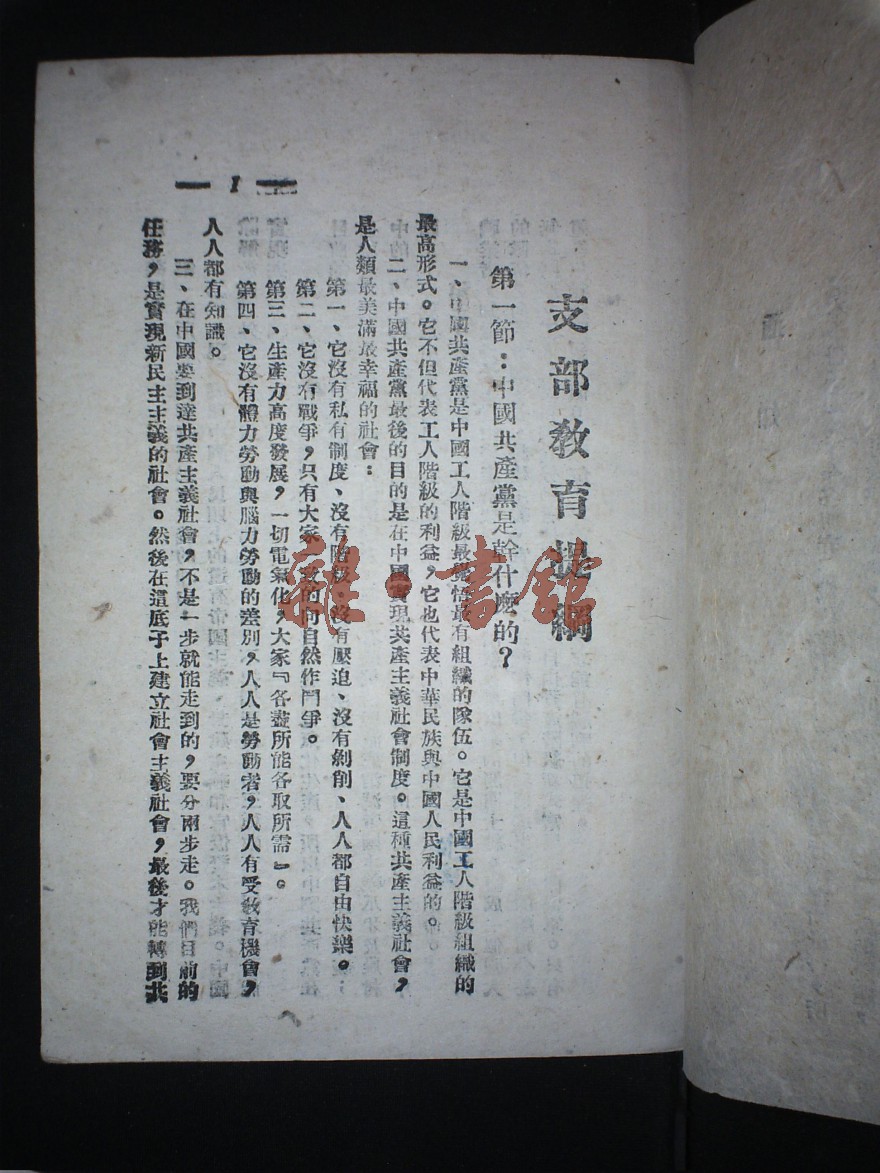 支部教育提綱
第一節：中國共產黨是幹什麼的？
一、中國共產黨是中國工人階級最覺悟最有組織的隊伍。它是中國工人階級組織的
最高形式。它不但代表工人階級的利益，它也代表中華民族與中國人民利益的。
二、中國共產黨最後的目的是在中國實現共產主義社會制度。這種共產主義社會，
是人類最美滿最幸福的社會：
第一、它沒有私有制度、沒有階級、沒有壓迫、沒有剝削、人人都自由快樂。
第二、它沒有戰爭，只有大家 的向自然作鬥爭。
第三、生產力高度發展，一切電氣化，大家『各盡所能各取所需』。
第四、它沒有體力勞動與腦力勞動的差別，人人是勞動者，人人有受教育機會，
人人都有知識。
三、在中國要到達共產主義社會，不是一步就能走到的，要分兩步走。我們目前的
任務，是實現新民主主義的社會。然後在這底子上建立社會主義社會，最後才能轉到共
1
雜·書館